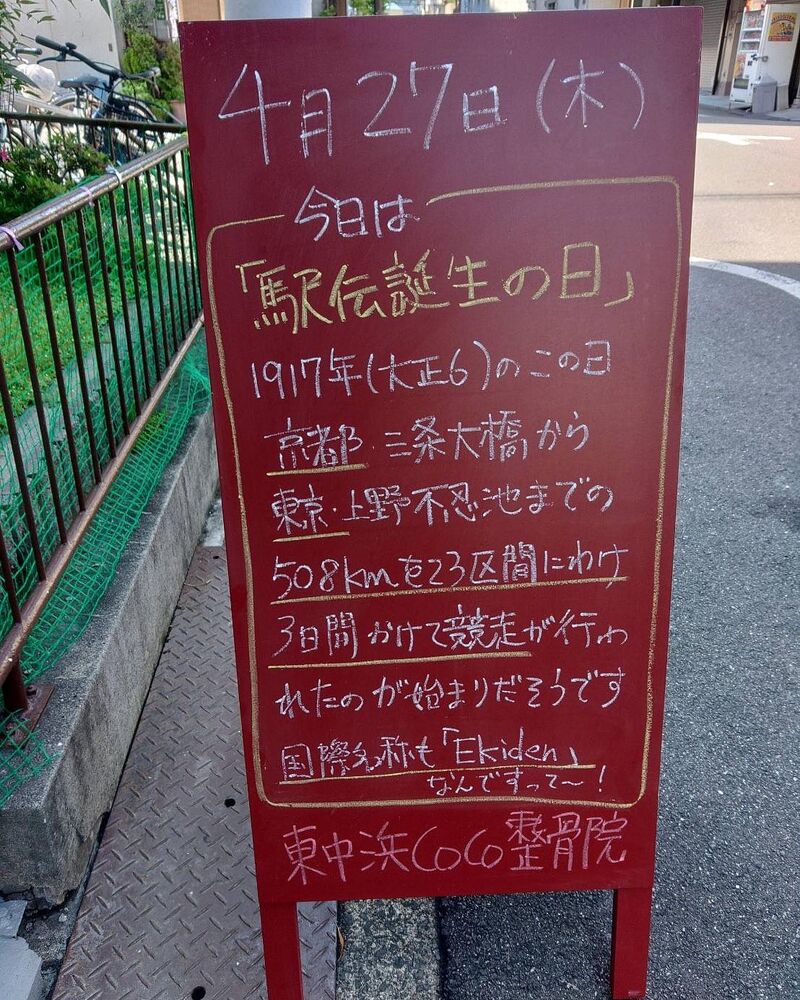 4月27日(木)
今日は
「駅伝誕生の日」
1917年(大正6)のこの日
京都・三条大橋から
東京・上野不忍池までの
508kmを23区間にわけ
3日間かけて競走が行わ
れたのが始まりだそうです
国際名称も「Ekiden」
なんですって〜!
東中浜CoCo整骨院